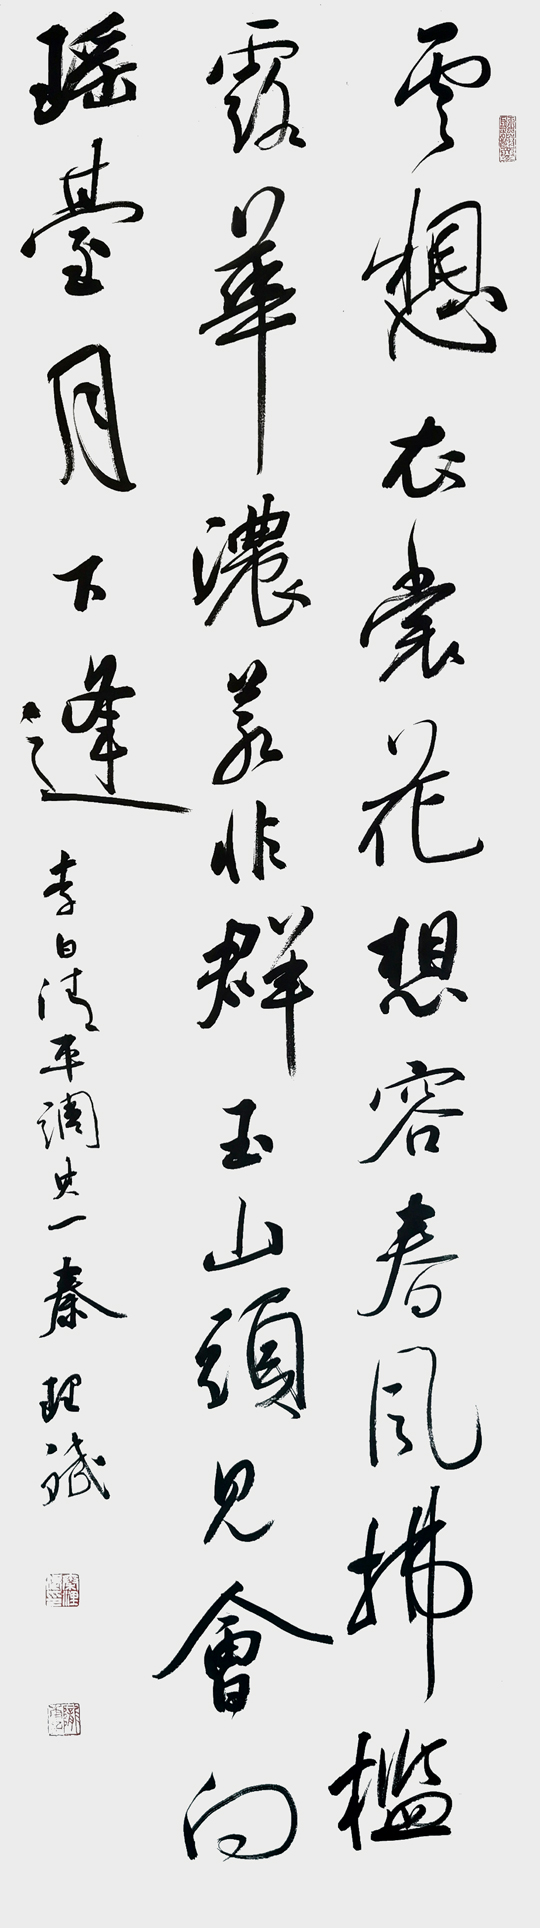 雲想衣裳花想容春風拂檻
露華濃若非群玉山頭見會向
瑶臺月下逢
李白清平調其一秦理斌